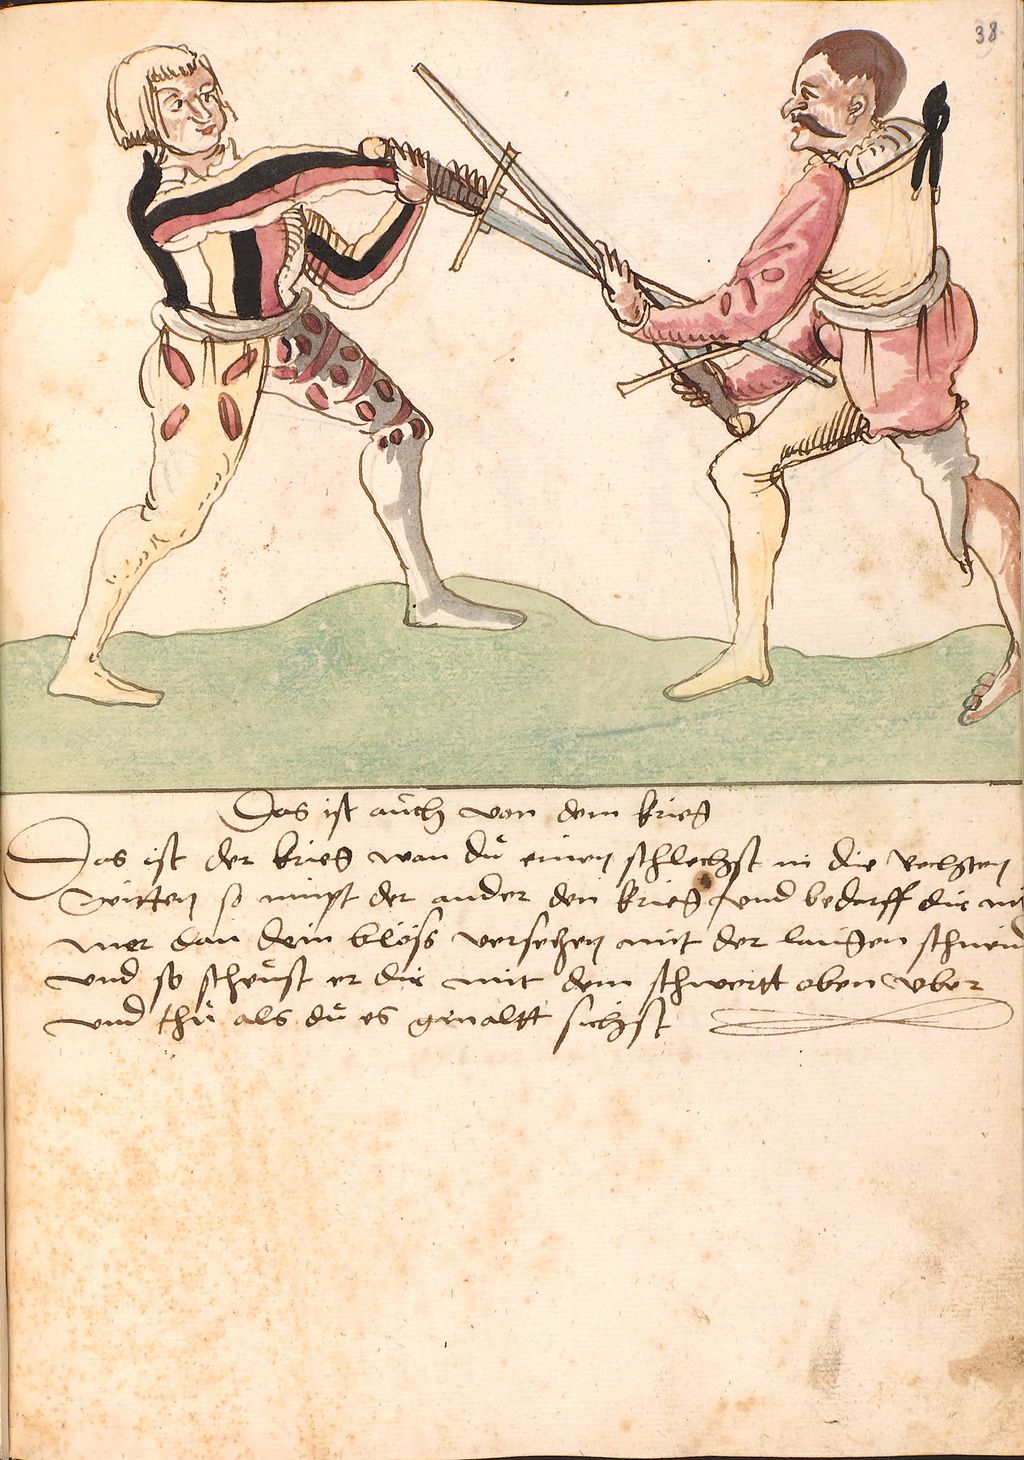 38
Das ist auch von dem krieg
Das ist der krieg wan dů einen schlechst in die rechsten
seitten so nimpt der ander den krieg und bedarff dir ni
mer dan dein blöss versechen mit der langen schneid
und so scheůst er dir mit dem schwertt oben uber
und thů als dů es gemaltt sichst